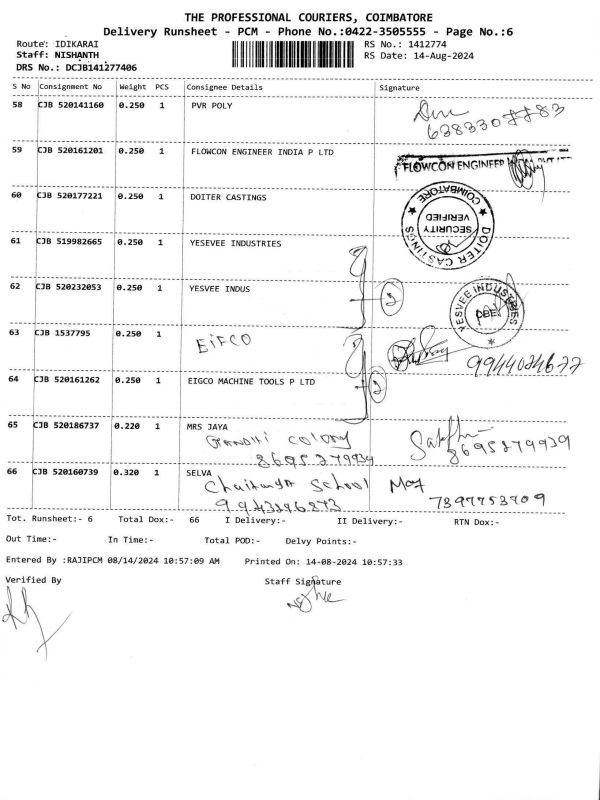 THE PROFESSIONAL COURIERS, COIMBATORE
Delivery Runsheet - PCM - Phone No.:0422-3505555 - Page No.:6
Route: IDIKARAI RS No.: 1412774
Staff: NISHANTH RS Date: 14-Aug-2024
DRS No.: DCJB141277406
S No Consignment No Weight PCS Consignee Details Signature
58 CJB 520141160 0.250 1 PVR POLY
59 CJB 520161201 0.250 1 FLOWCON ENGINEER INDIA P LTD FLOWCON ENGINEER
60 CJB 520177221 0.250 1 DOITER CASTINGS
DOITER CASTINGS COIMBATORE SECURITY VERIFIED
61 CJB 519982665 0.250 1 YESEVEE INDUSTRIES
62 CJB 520232053 0.250 1 YESVEE INDUS 2
YESVEE INDUSTRIES CBE
63 CJB 1537795 0.250 1 EIFCO
64 CJB 520161262 0.250 1 EIGCO MACHINE TOOLS P LTD 2
65 CJB 520186737 0.220 1 MRS JAYA
GANDHI COLONY
8695279939 8695279939
66 CJB 520160739 0.320 1 SELVA
School
Tot. Runsheet:- 6 Total Dox:- 66 I Delivery:- II Delivery:- RTN Dox:-
Out Time:- In Time:- Total POD:- Delvy Points:-
Entered By :RAJIPCM 08/14/2024 10:57:09 AM Printed On: 14-08-2024 10:57:33
Verified By Staff Signature